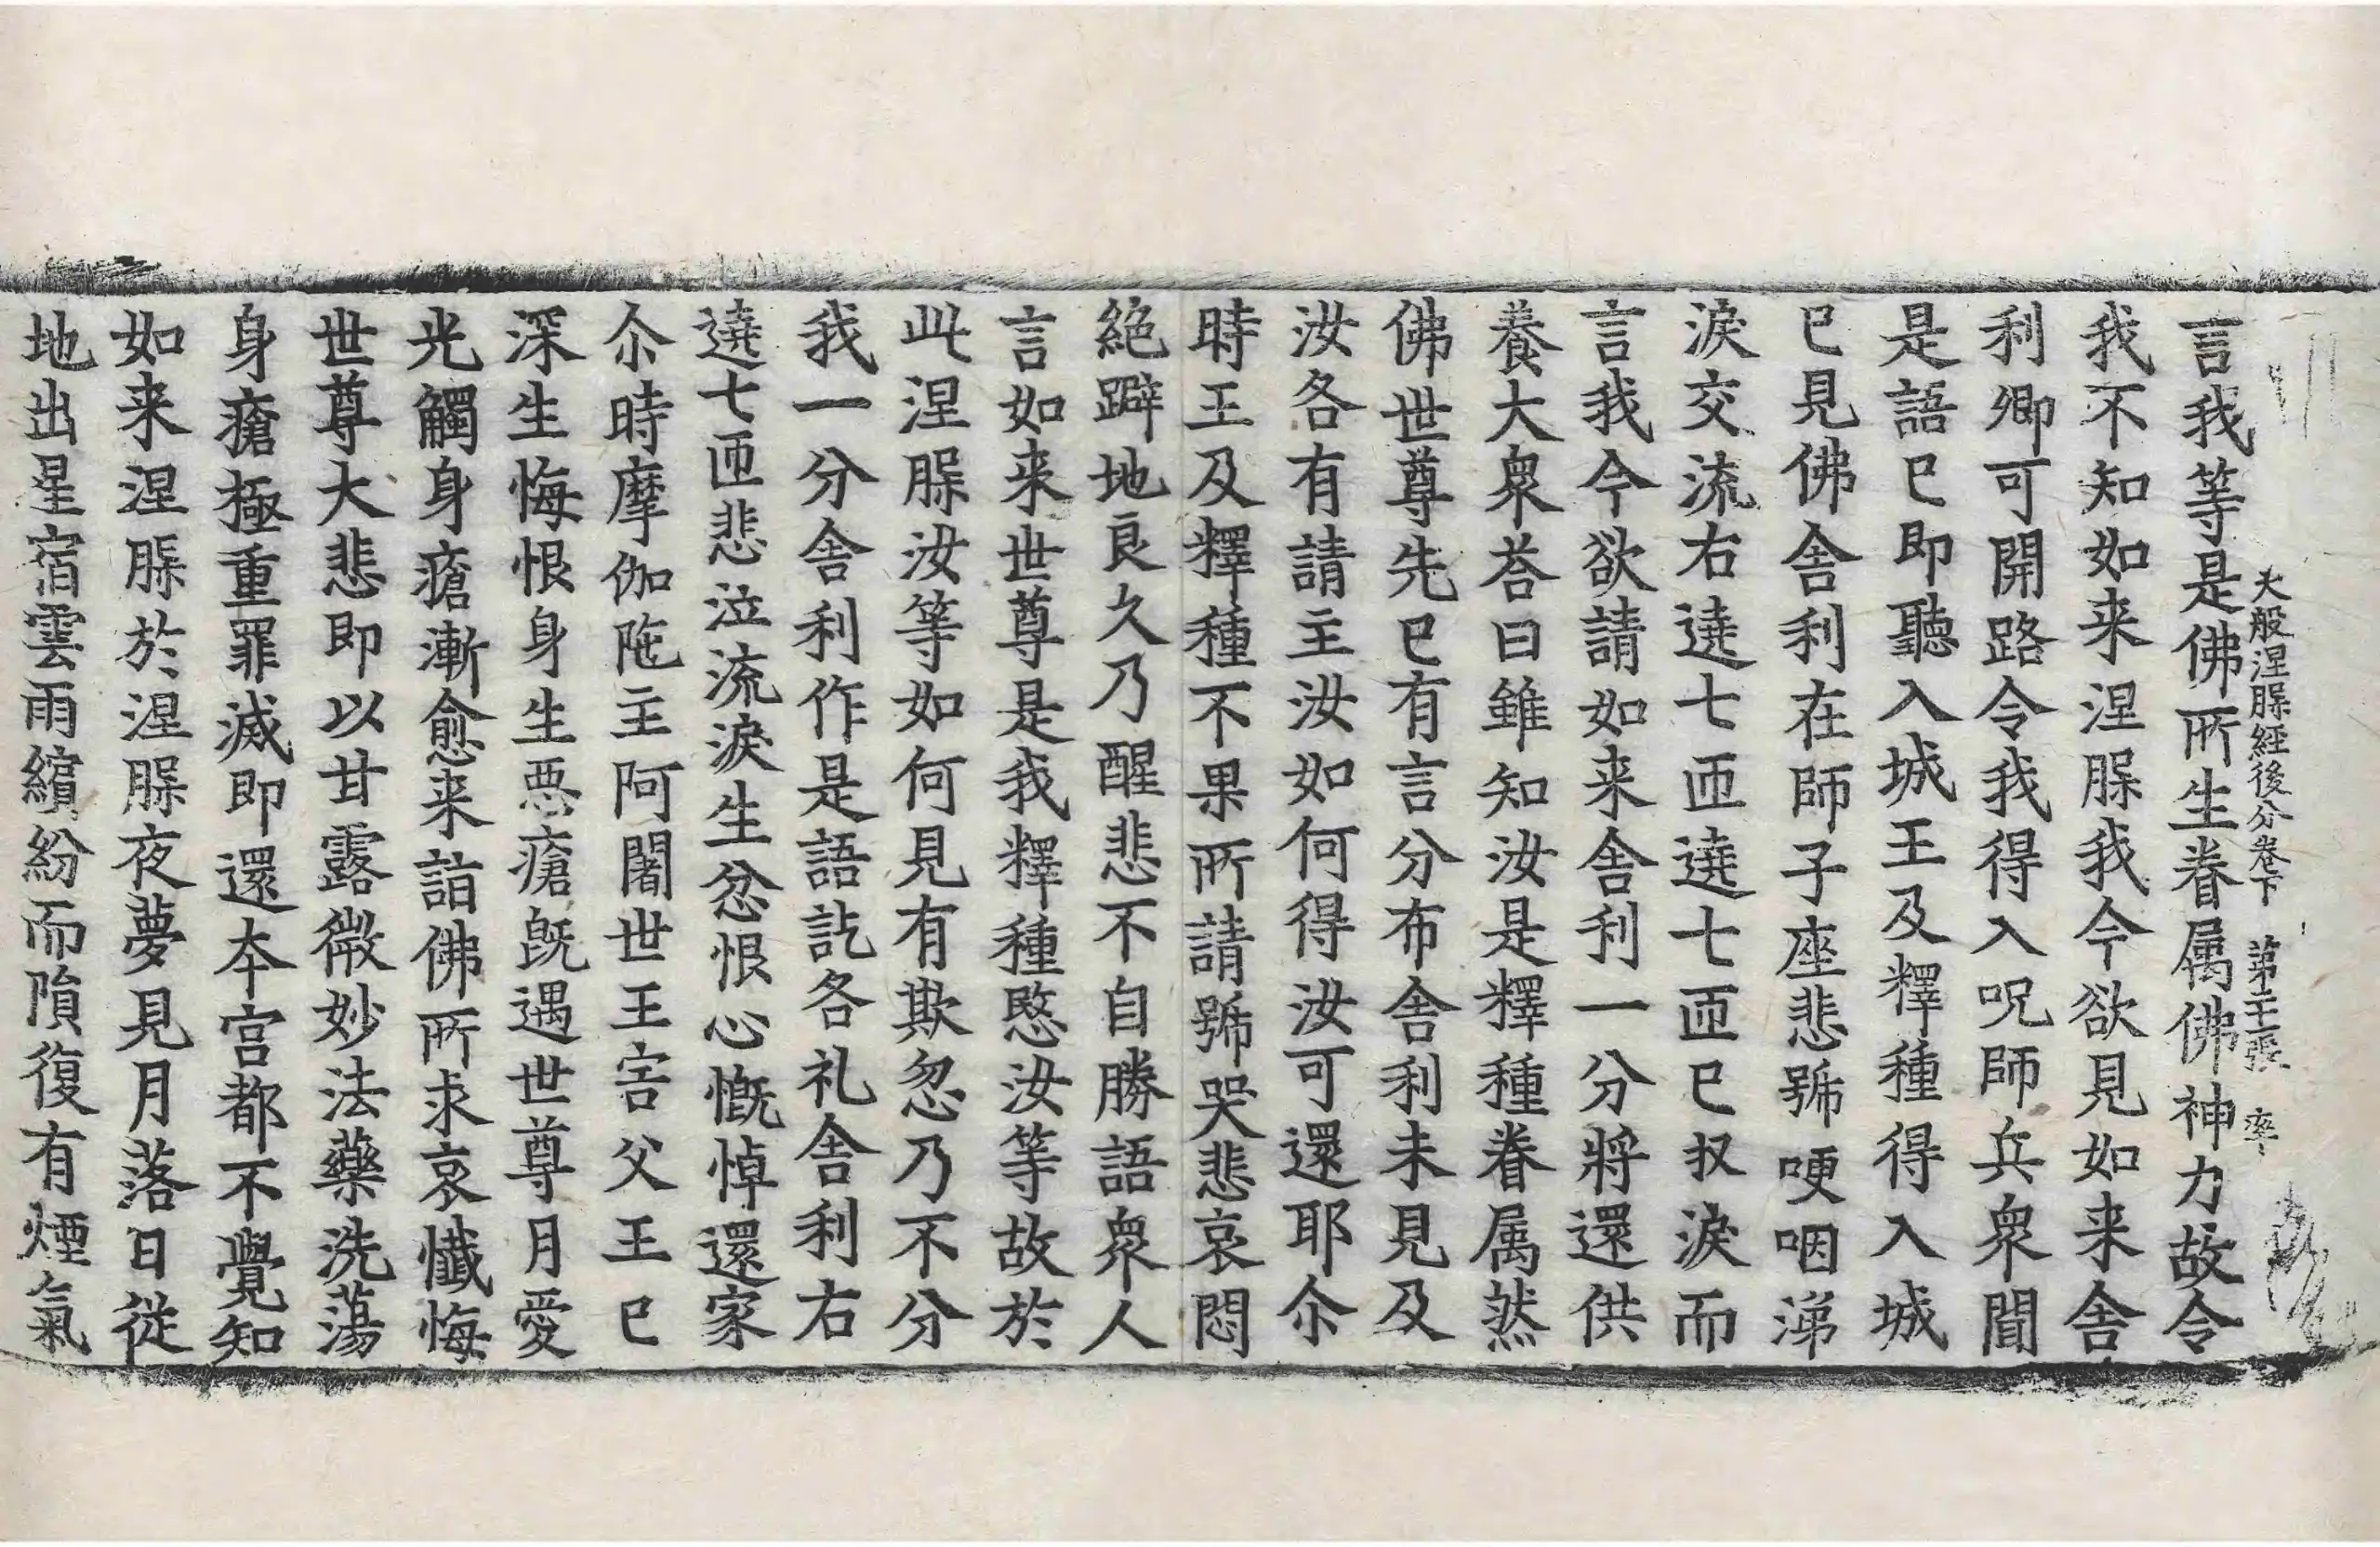 大般涅槃經後分卷下 第王張 率
言我等是佛所生眷属佛神力故令
我不知如来涅槃我今欲見如来舍
利卿可開路令我得入呪師兵衆聞
是語已即聽入城王及釋種得入城
已見佛舍利在師子座悲號哽咽涕
淚交流右遶七匝遶七匝已収淚而
言我今欲請如来舍利一分將還供
養大衆荅曰雖知汝是釋種眷属然
佛世尊先已有言分布舍利未見及
汝各有請主汝如何得汝可還耶尒
時王及釋種不果所請號哭悲哀悶
絕躃地良久乃醒悲不自勝語衆人
言如来世尊是我釋種愍汝等故於
此涅槃汝等如何見有欺忽乃不分
我一分舍利作是語訖各礼舍利右
遶七匝悲泣流淚生忿恨心慨悼還家
尒時摩伽陁主阿闍世王害父王已
深生悔恨身生惡瘡既遇世尊月愛
光觸身瘡漸愈来詣佛所求哀懺悔
世尊大悲即以甘露微妙法藥洗蕩
身瘡極重罪滅即還夲宫都不覺知
如来涅槃於涅槃夜夢見月落日從
地出星宿雲雨繽紛而隕復有煙氣